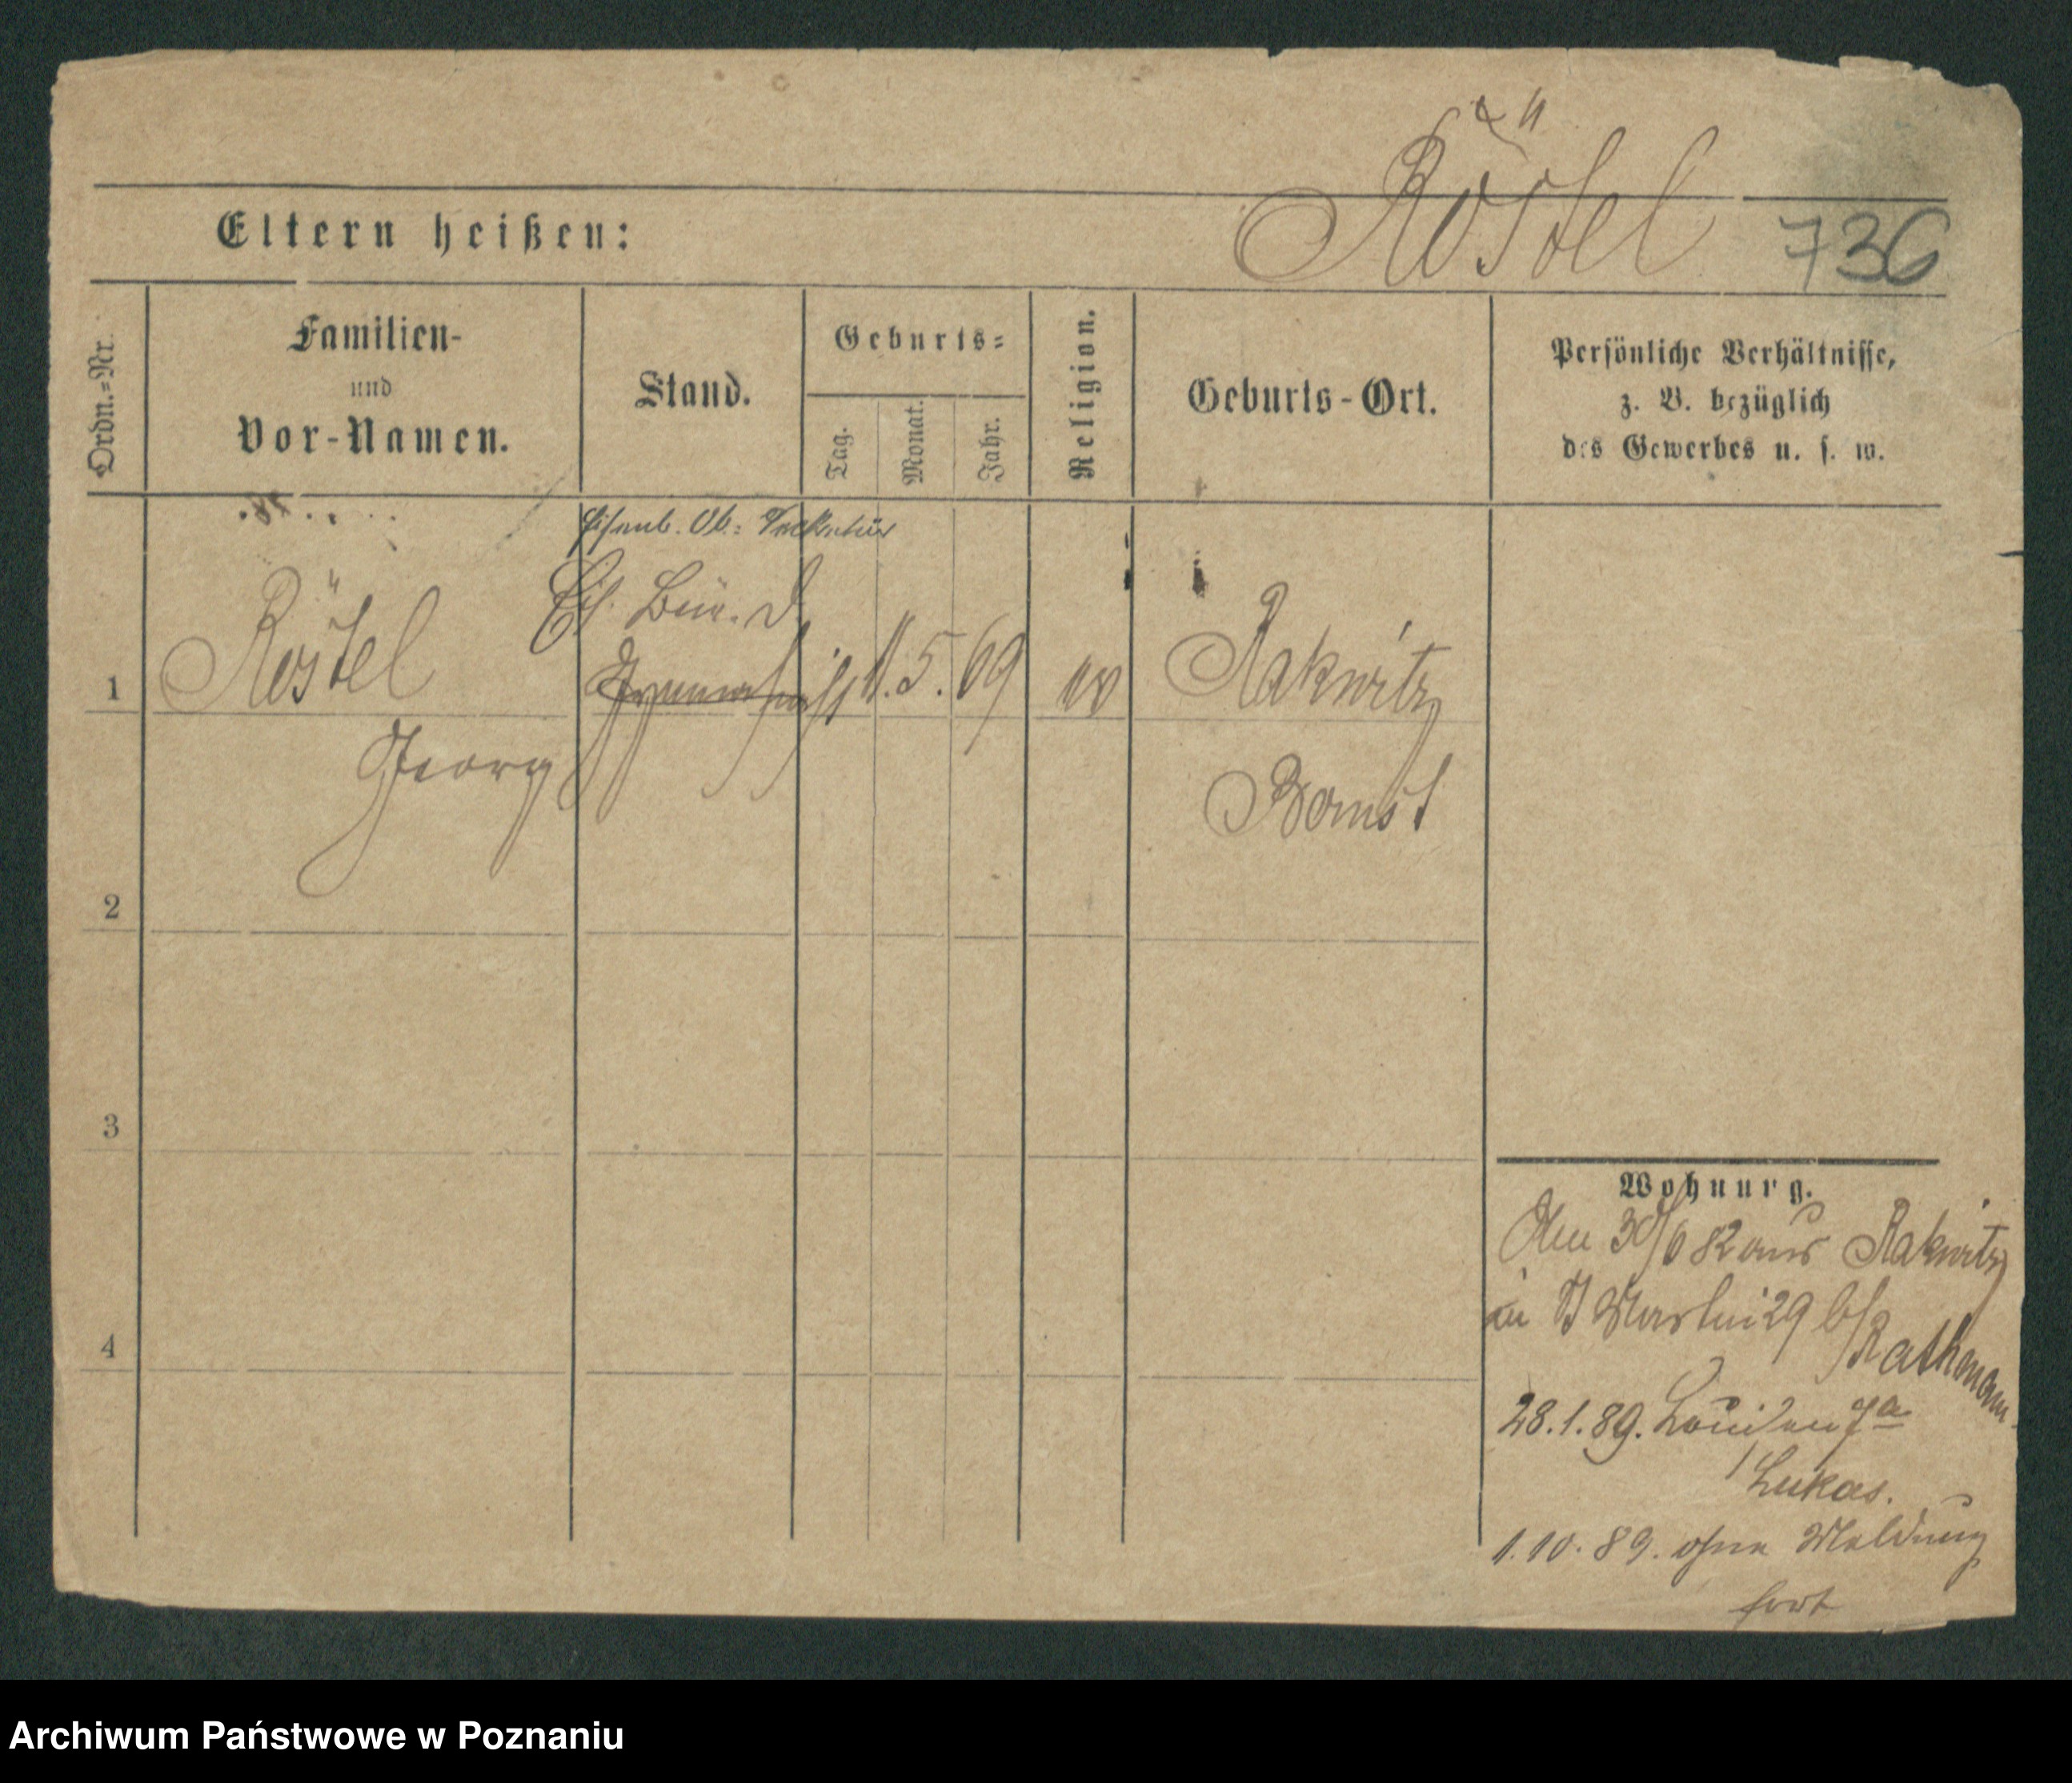 Röstel
736
Eltern heißen:
Ordn.=Nr.
Familien-
und
Vor-Namen.
Stand.
Geburts=
Tag.
Monat.
Jahr.
Religion.
Geburts-Ort.
Persönliche Verhältnisse,
z. B. bezüglich
des Gewerbes u. s. w.
Eisenb. Ob:
Bür. D.
1
Röstel
Gymnasiast
1. 5. 69
ev
Rakwitz
Georg
Bomst
2
3
4
Wohnung.
Den 30/6 82 aus Rakwitz
in St Martin 29 b/
Rathmann
28.1.89. Louisen 7a
/Lukas.
1.10.89. ohne Meldung
fort
Archiwum Państwowe w Poznaniu